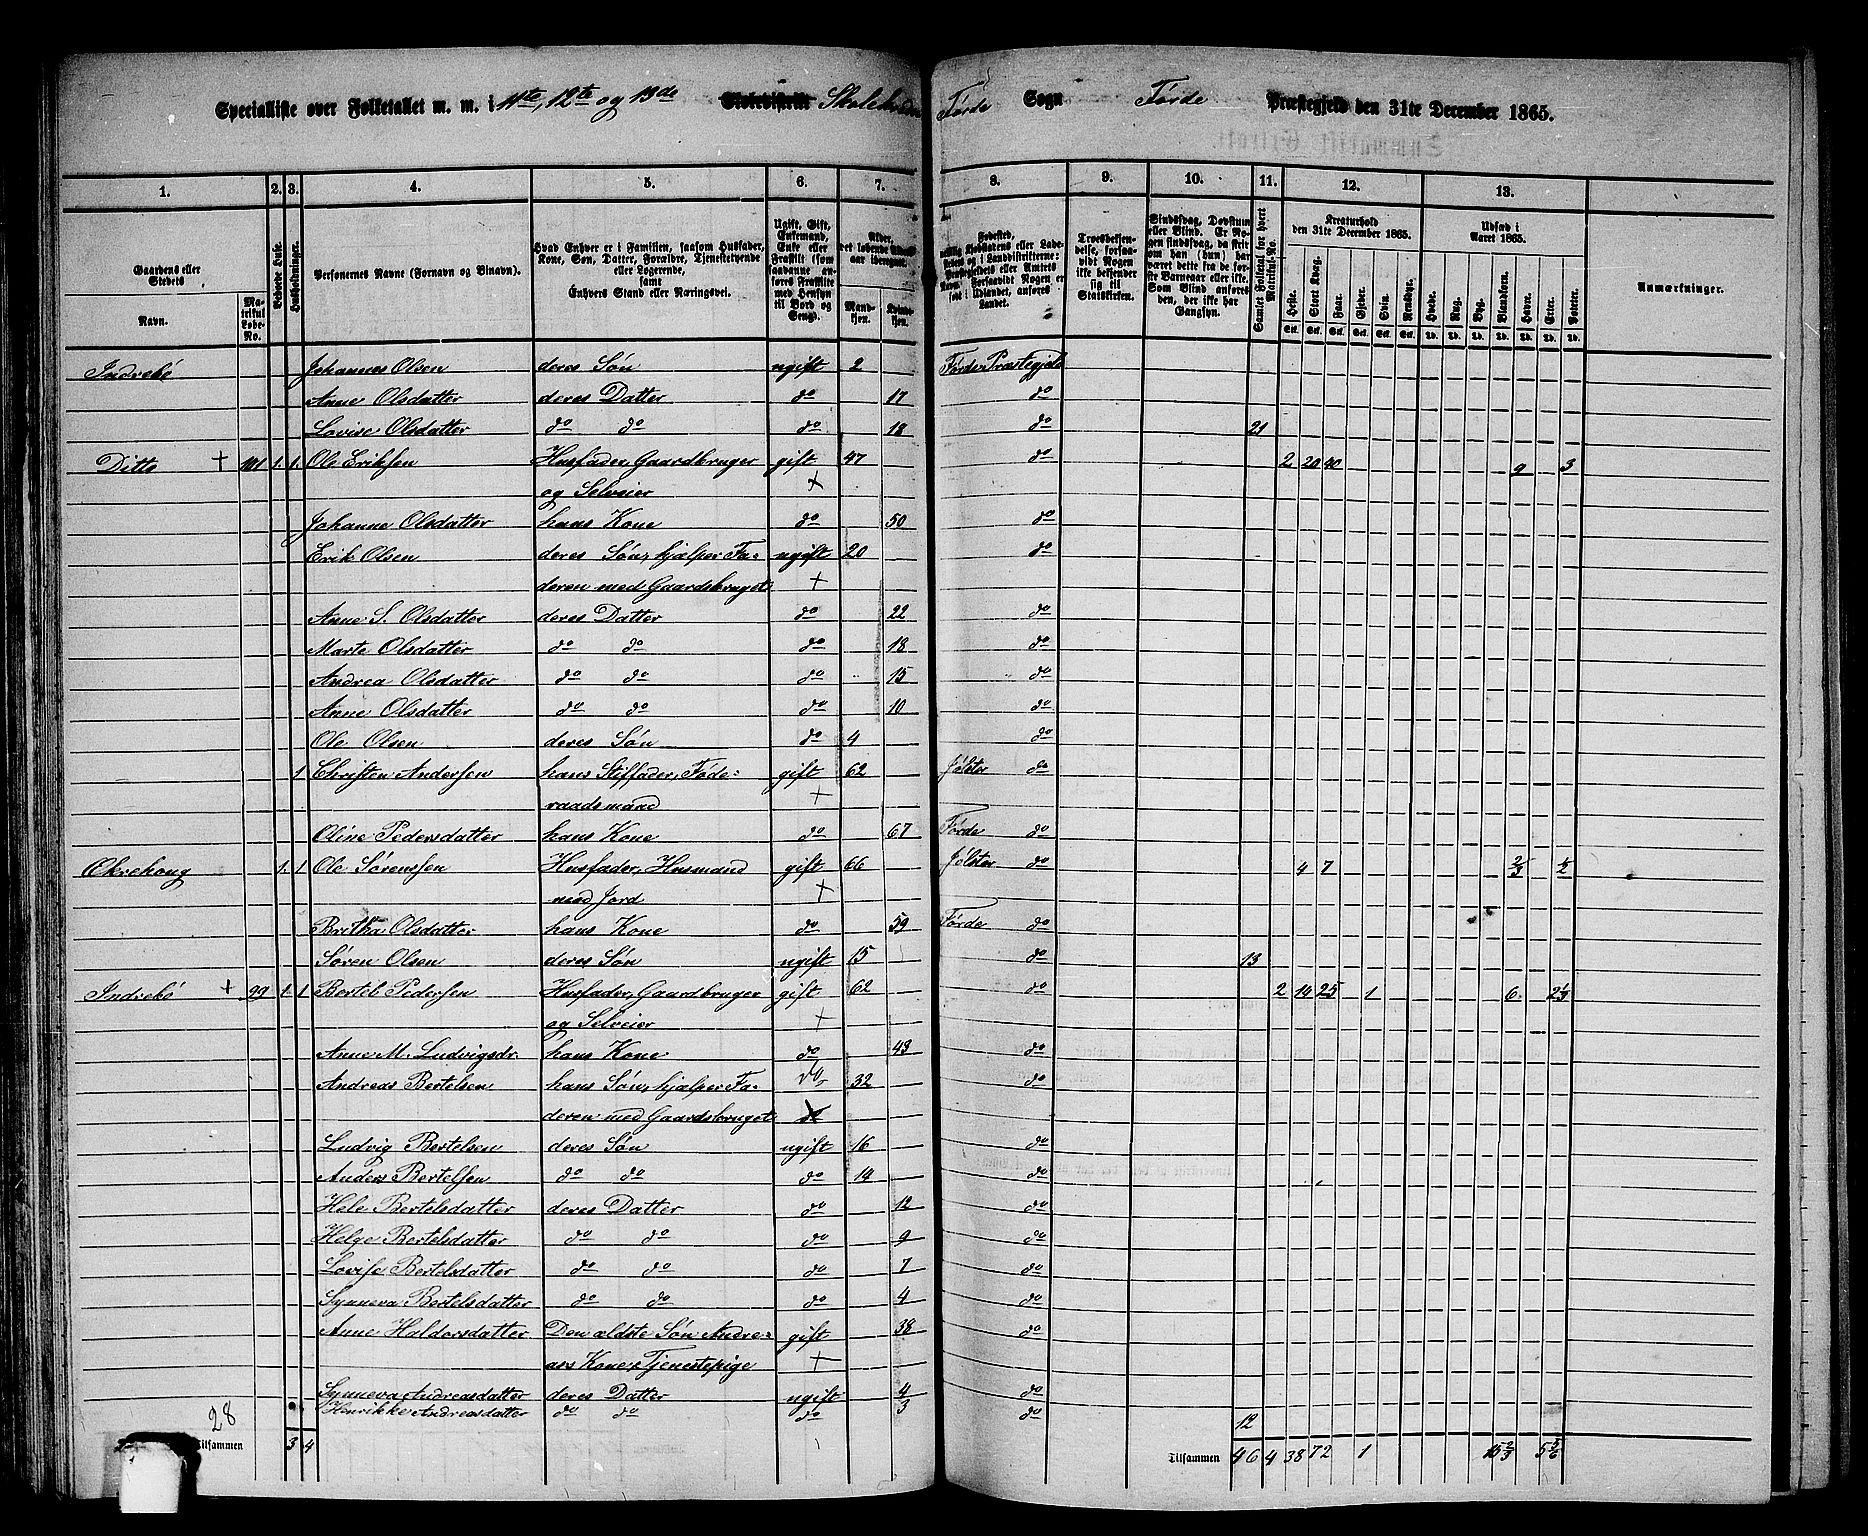 Specialliste over Folketallet m. m. i 11te, 12te og 13de Skolekreds Førde Sogn Førde Præstegjeld den 31te December 1865.
1. 2. 3. 4. 5. 6. 7. 8. 9. 10. 11. 12. 13.
Gaardens eller Stedets
Navn.
Matrikul Løbe-No.
Beboede Huse.
Husholdninger.
Personernes Navne (Fornavn og Binavn).
Hvad Enhver er i Familien, saasom Husfader, Kone, Søn, Datter, Forældre, Tjenestetyende eller Logerende, samt Enhvers Stand eller Næringsvei.
Ugift, Gift, Enkemand, Enke eller Fraskilt (som saadanne anføres Fraskilte med Hensyn til Bord og Seng).
Trosbekjendelse, forsaavidt Nogen ikke bekjender sig til Statskirken.
Samlet Folketal for hvert Matrikul-No.
Kreaturhold den 31te December 1865.
Udsæd i Aaret 1865.
Anmærkninger.
Heste. Stort Kvæg. Faar. Gjeder. Svin. Rensdyr. Hvede. Rug. Byg. Blandkorn. Havre. Erter. Poteter.
Indrebø Johannes Olsen deres Søn ugift 2 Førde Præstegjeld
Anne Olsdatter deres Datter do 17 do
Lovise Olsdatter do do do 18 do 21
Ditto + 101 1. 1. Ole Eriksen Husfader, Gaardbruger gift 47 do 2 20 40 9 3
og Selveier +
Johanne Olsdatter hans Kone do 50 do
Erik Olsen deres Søn, hjælper Fa- ugift 20 do
deren med Gaardsbruget +
Anne S. Olsdatter deres Datter do 22 do
Marte Olsdatter do do do 18 do
Andrea Olsdatter do do do 15 do
Anne Olsdatter do do do 10 do
Ole Olsen deres Søn do 4 do
1 Christen Andersen hans Stiffader, Føde- gift 62 Jølster do
raadsmand +
Oline Pedersdatter hans Kone do 67 Førde do
Okrehoug 1. 1 Ole Sørenssen Husfader, Husmand gift 66 Jølster do 4 7 2/3 1/2
med Jord +
Britha Olsdatter hans Kone do 59 Førde do
Søren Olsen deres Søn ugift 15 do 13
Indrebø + 99 1 1 Bertel Pedersen Husfader, Gaardbruger gift 62 do 2 14 25 1 6 2 1/3
og Selveier +
Anne M. Ludvigsdr. hans Kone do 43 do
Andreas Bertelsen hans Søn, hjælper Fa- do 32 do
deren med Gaardsbruget
Ludvig Bertelsen deres Søn ugift 16 do
Anders Bertelsen do do do 14 do
Hele Bertelsdatter deres Datter do 12 do
Helge Bertelsdatter do do do 9 do
Lovise Bertelsdatter do do do 7 do
Synneva Bertelsdatter do do do 4 do
Anne Haldorsdatter Den ældste Søn Andre- gift 38 do
ass Kone, Tjenestepige +
Synneva Andreasdatter deres Datter ugift 4 do
Henrikke Andreasdatter do do do 3 do 12
28
Tilsammen 3 4 Tilsammen 46 4 38 72 1 15 2/3 5 5/6